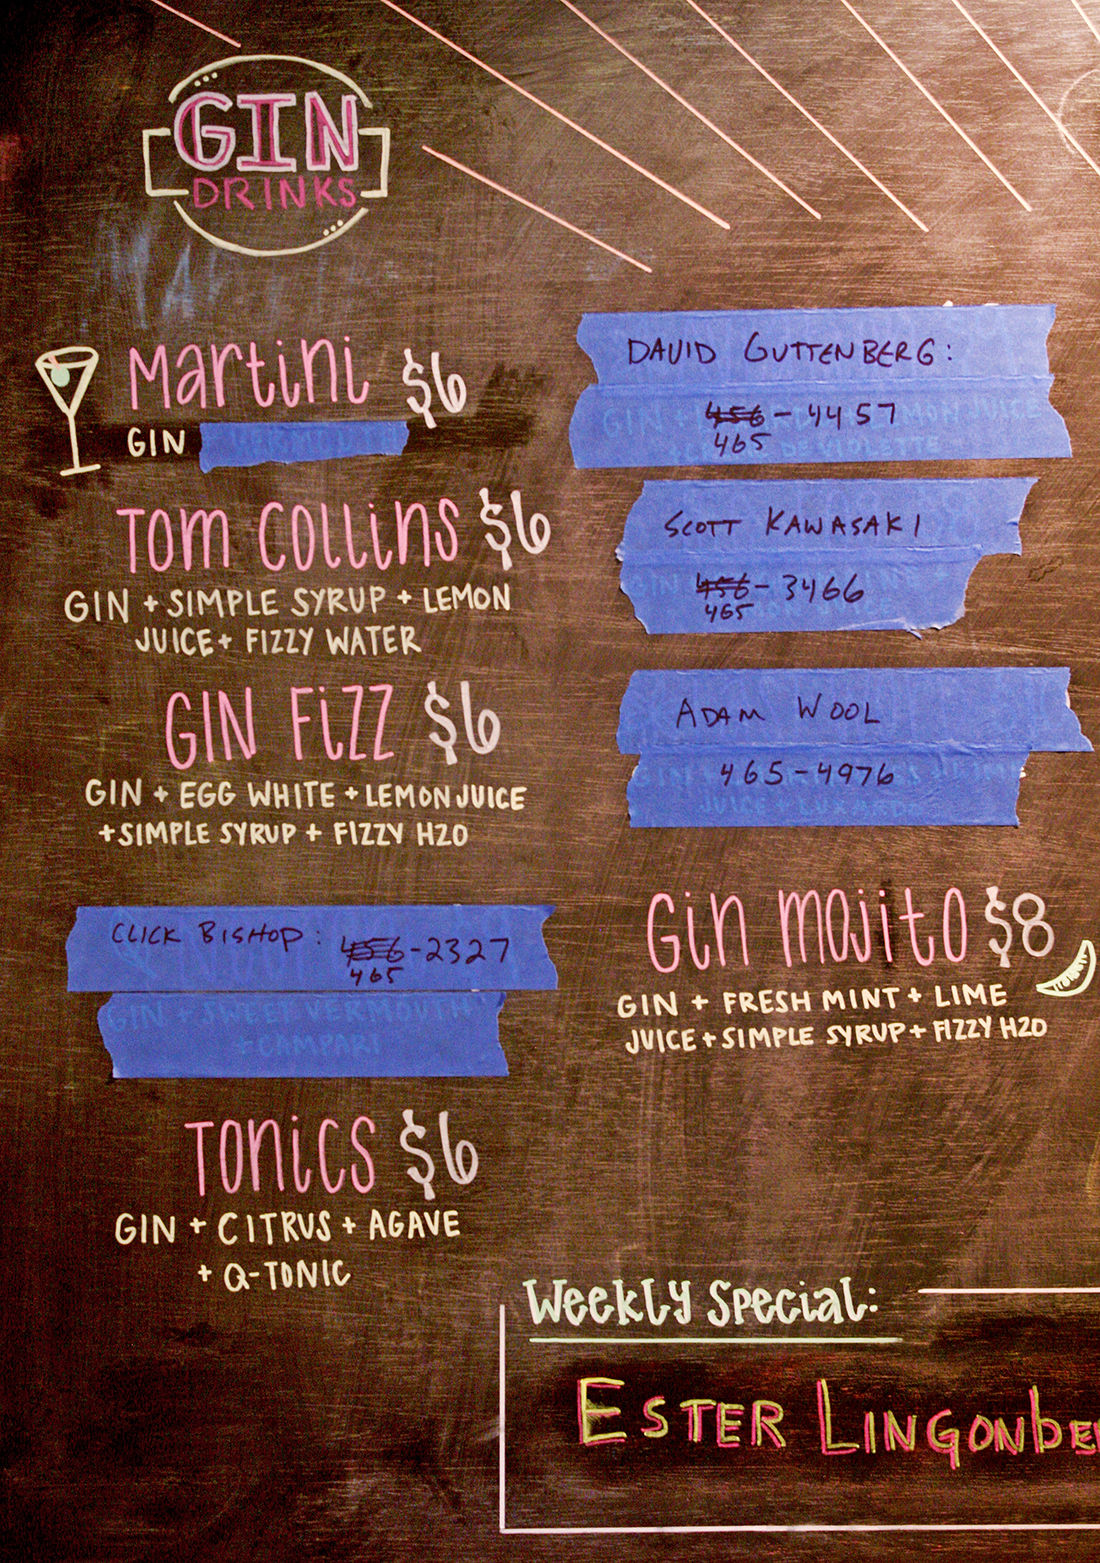 GIN
DRINKS
Martini $6
GIN VERMOUTH
TOM COLLINS $6
GIN + SIMPLE SYRUP + LEMON
JUICE + FIZZY WATER
GIN FIZZ $6
GIN + EGG WHITE + LEMON JUICE
+ SIMPLE SYRUP + FIZZY H2O
CLICK BISHOP: 456-2327
465
GIN + SWEET VERMOUTH
+ CAMPARI
TONICS $6
GIN + CITRUS + AGAVE
+ Q-TONIC
DAVID GUTTENBERG:
456-4457
465
SCOTT KAWASAKI
456-3466
465
ADAM WOOL
465-4976
Gin mojito $8
GIN + FRESH MINT + LIME
JUICE + SIMPLE SYRUP + FIZZY H2O
Weekly Special:
ESTER LINGONbER